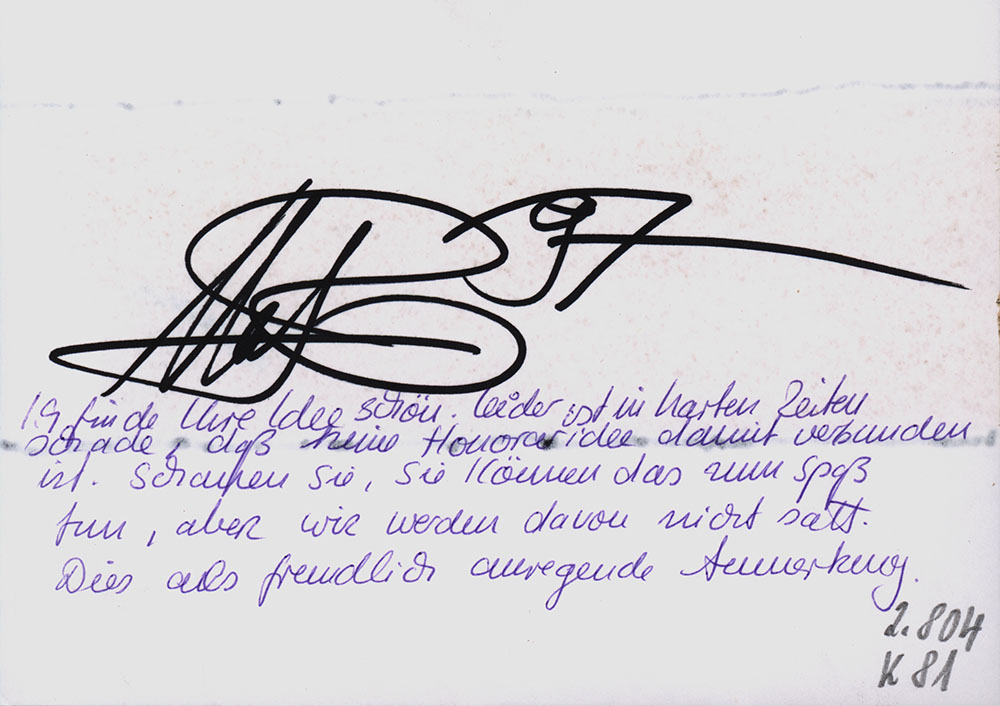 97
Ich finde Ihre Idee schön. Leider ist in harten Zeiten
schade, daß keine Honoraridee damit verbunden
ist. Schauen Sie, Sie können das zum Spaß
tun, aber wir werden davon nicht satt.
Dies als freundlich anregende Anmerkung.
2.804
K 81